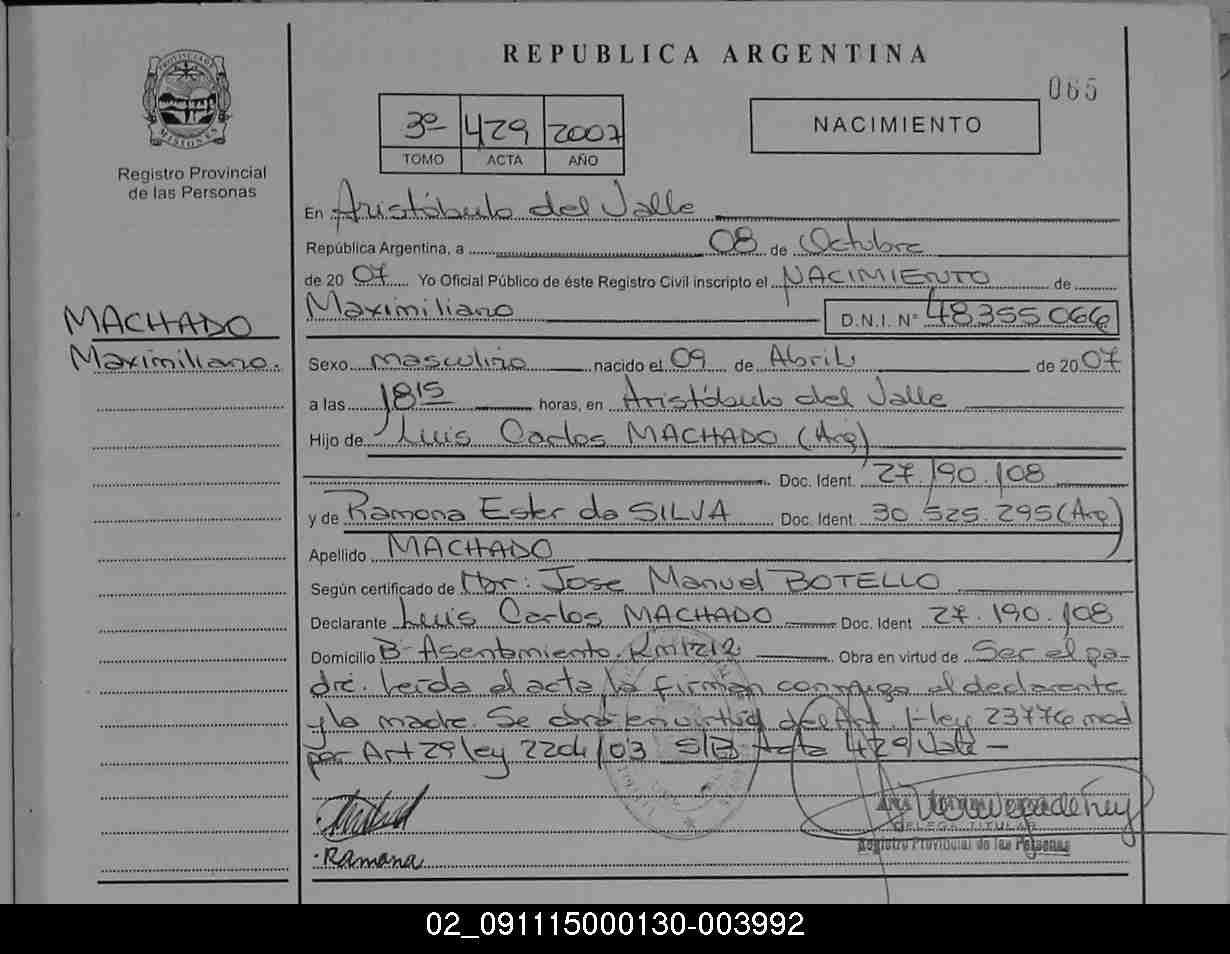 REPUBLICA ARGENTINA
065
3º 429 2007
TOMO ACTA AÑO
NACIMIENTO
MISIONES
Registro Provincial
de las Personas
En Aristóbulo del Valle
República Argentina, a 08 de Octubre
de 20 07. Yo Oficial Público de éste Registro Civil inscripto el NACIMIENTO de
Maximiliano D.N.I. Nº 48355066
MACHADO
Maximiliano.
Sexo masculino nacido el 09 de Abril de 20 07
a las 1815 horas, en Aristóbulo del Valle
Hijo de Luis Carlos MACHADO (Arg)
Doc. Ident. 27.190.108
y de Ramona Ester da SILVA Doc. Ident. 30.525.295 (Arg)
Apellido MACHADO
Según certificado de Jose Manuel BOTELLO
Declarante Luis Carlos MACHADO Doc. Ident 27.190.108
Domicilio Bº Asentamiento. Km 1212 Obra en virtud de Ser el pa-
dre. Leída el acta, la firman conmigo el declarante
y la madre. Se obra en virtud del Art. 1-ley 23776 mod
por Art 29 ley 22 /03 S/B Acta 429 Vale -
Ramona
DELEG. TITULAR
Registro Provincial de las Personas
02_091115000130-003992